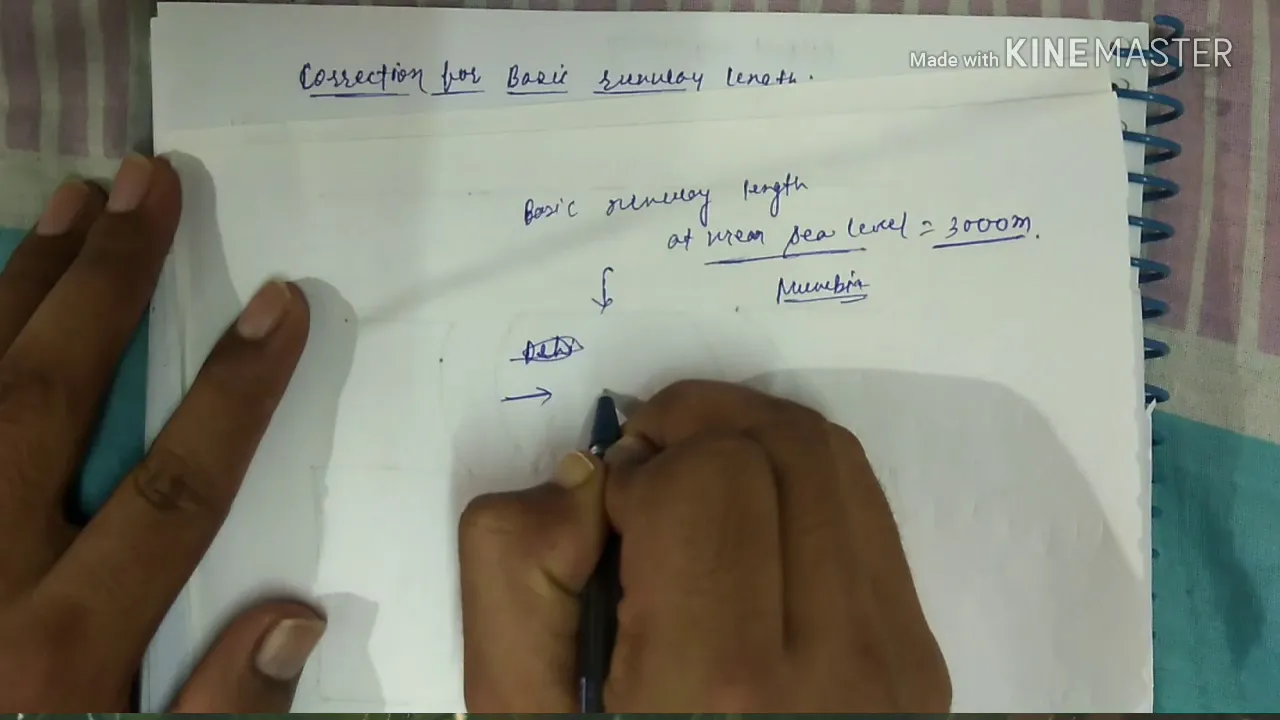 Made with KINEMASTER
Correction for Basic runway length.
Basic runway length
at mean sea level = 3000m.
Mumbai